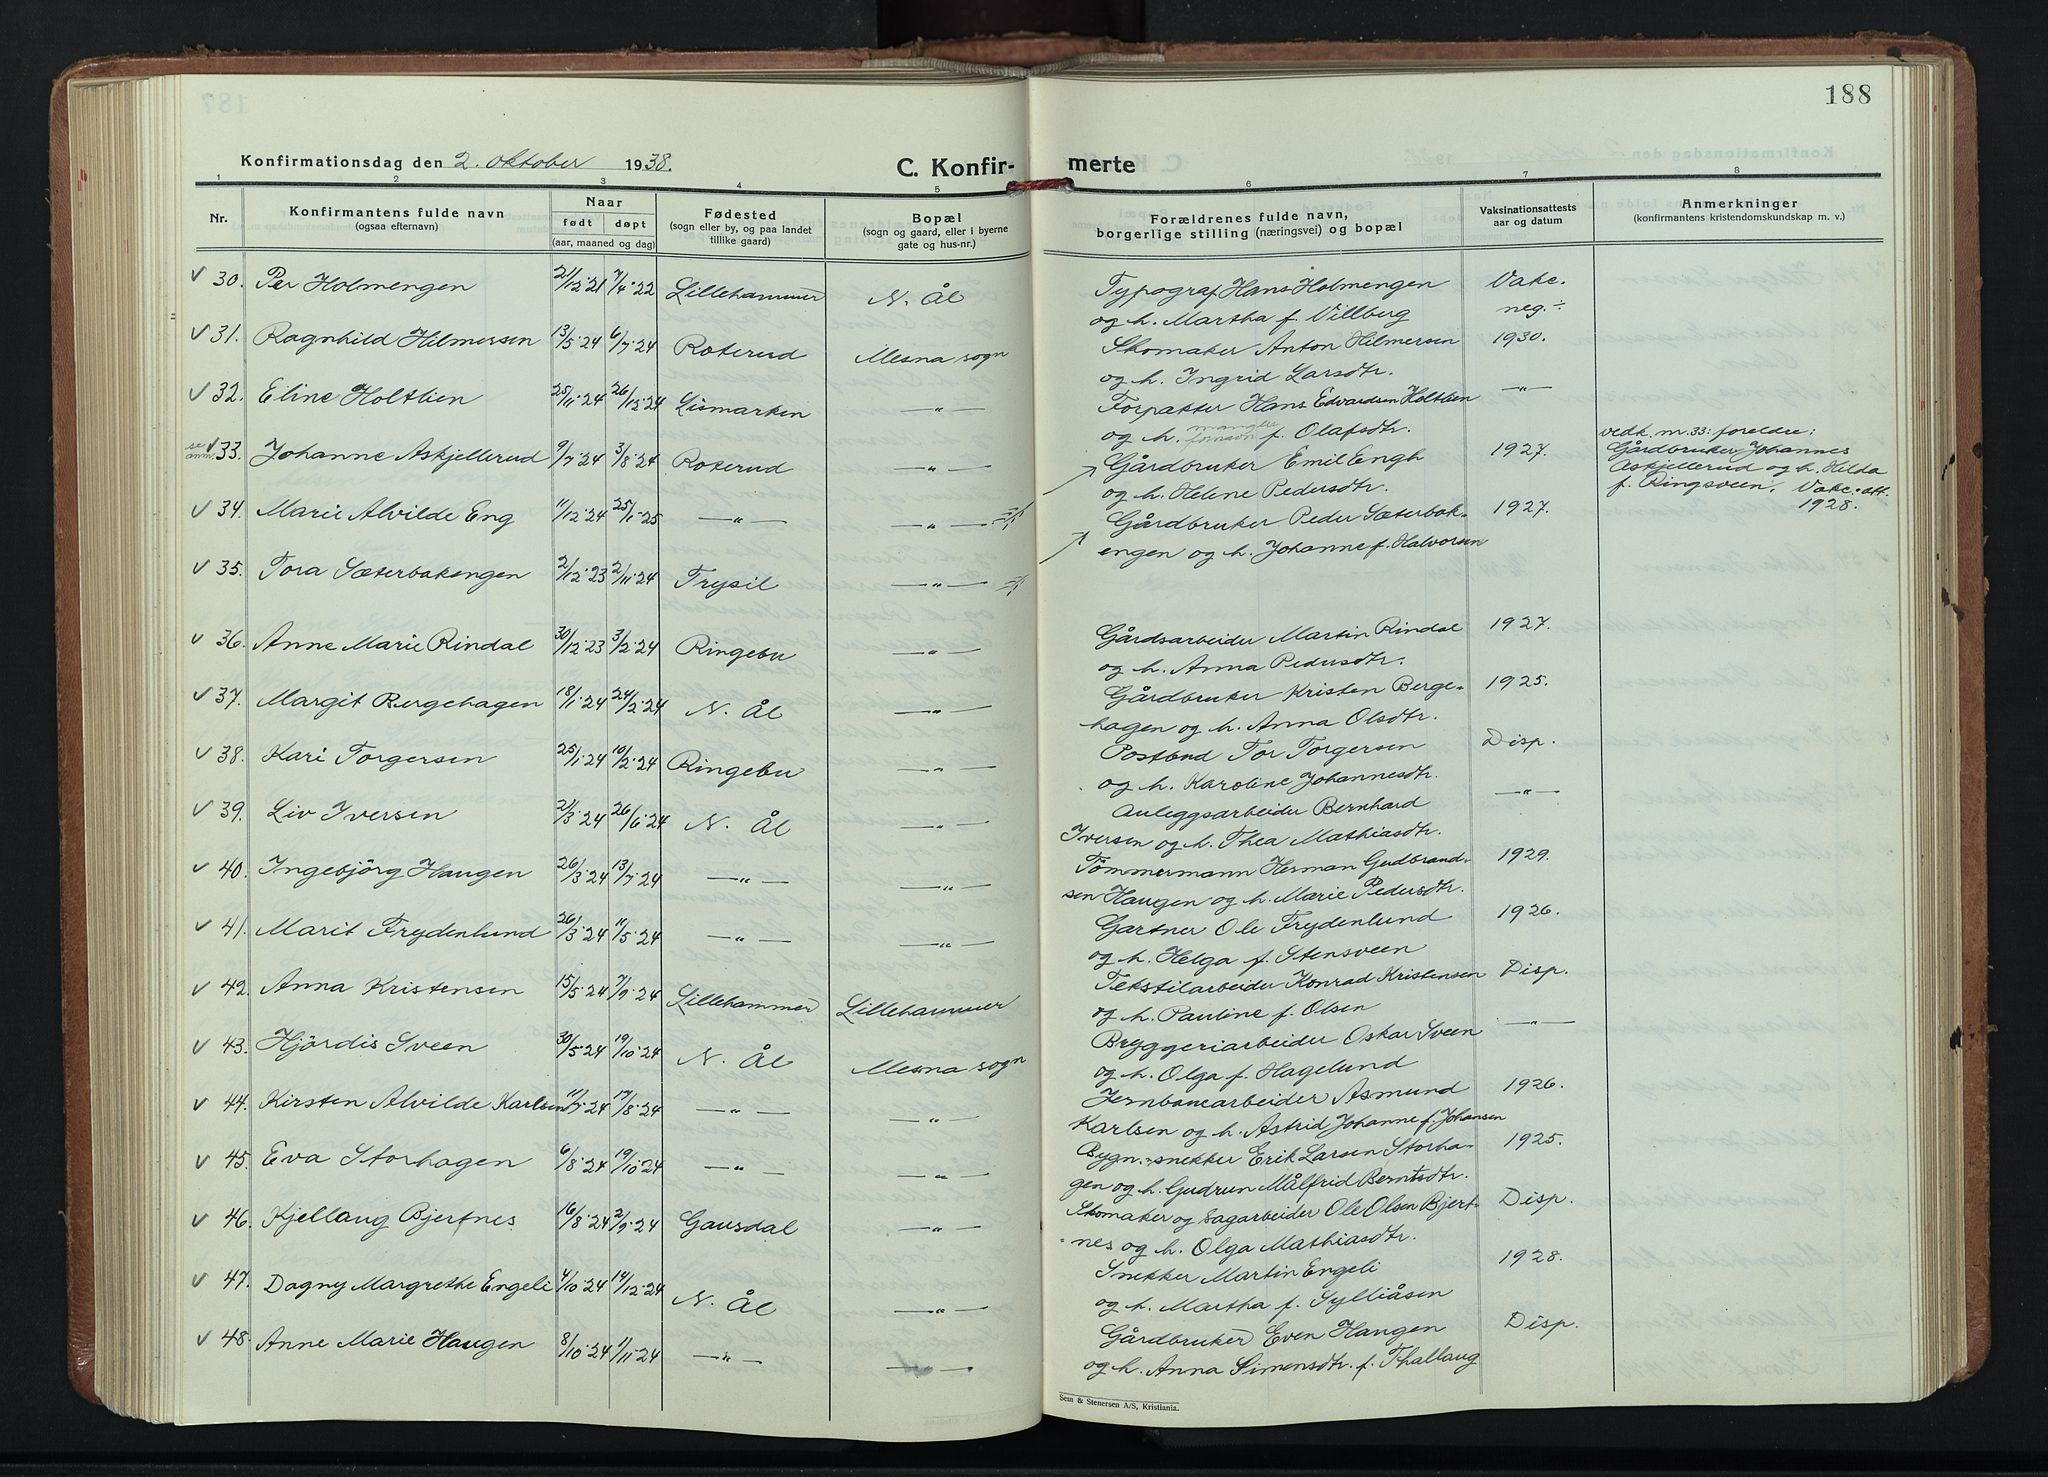 188
Konfirmationsdag den 2. oktober 1938.
C. Konfir-
merte
1 2 3 4 5 6 7 8
Nr.
Konfirmantens fulde navn
(ogsaa efternavn)
Naar
født døpt
(aar, maaned og dag)
Fødested
(sogn eller by, og paa landet
tillike gaard)
Bopæl
(sogn og gaard, eller i byerne
gate og hus-nr.)
Forældrenes fulde navn,
borgerlige stilling (næringsvei) og bopæl
Vaksinationsattests
aar og datum
Anmerkninger
(konfirmantens kristendomskundskap m. v.)
✓ 30. Per Holmengen 21/12·21 7/4·22 Lillehammer N. Ål
Typograf Hans Holmengen Vakc.
og h. Martha f. Villberg neg. ÷
✓ 31. Ragnhild Hilmersen 13/5·24 6/7·24 Roterud Mesna sogn
Skomaker Anton Hilmersen 1930.
og h. Ingrid Larsdtr.
✓ 32. Eline Holtlien 25/11·24 26/12·24 Lismarken —"—
Forpakter Hans Edvardsen Holtlien —"—
og h. mangler fornavn f. Olafsdtr.
se anm. ✓ 33. Johanne Askjellerud 9/7·24 3/8·24 Roterud —"—
Gårdbruker Emil Engh 1927.
og h. Helene Pedersdtr.
vedk. nr. 33: foreldre:
Gårdbruker Johannes
Askjellerud og h. Hilda
f. Ringsveen. Vakc. att.
1928.
✓ 34. Marie Alvilde Eng 11/12·24 25/1·25 —"— —"—
Gårdbruker Peder Sæterbak- 1927.
engen og h. Johanne f. Halvorsen
✓ 35. Tora Sæterbakengen 2/12·23 2/11·24 Trysil —"—
✓ 36. Anne Marie Rindal 30/12·23 3/2·24 Ringebu —"—
Gårdsarbeider Martin Rindal 1927.
og h. Anna Pedersdtr.
✓ 37. Margit Bergehagen 18/1·24 24/2·24 N. Ål —"—
Gårdbruker Kristen Berge- 1925.
hagen og h. Anna Olsdtr.
✓ 38. Kari Torgersen 25/1·24 10/2·24 Ringebu —"—
Postbud Tor Torgersen Disp.
og h. Karoline Johannesdtr.
✓ 39. Liv Iversen 21/3·24 26/6·24 N. Ål —"—
Anleggsarbeider Bernhard —"—
Iversen og h. Thea Mathiasdtr.
✓ 40. Ingebjörg Haugen 26/3·24 13/7·24 —"— —"—
Tömmermann Herman Gudbrand- 1929.
sen Haugen og h. Marie Pedersdtr.
✓ 41. Marit Frydenlund 26/3·24 11/5·24 —"— —"—
Gartner Ole Frydenlund 1926.
og h. Helga f. Stensveen
✓ 42. Anna Kristensen 15/5·24 7/9·24 Lillehammer Lillehammer
Tekstilarbeider Konrad Kristensen Disp.
og h. Pauline f. Olsen
✓ 43. Hjördis Sveen 30/5·24 19/10·24 N. Ål Mesna sogn
Bryggeriarbeider Oskar Sveen —"—
og h. Olga f. Hagelund
✓ 44. Kirsten Alvilde Karlsen 11/7·24 17/8·24 —"— —"—
Jernbanearbeider Asmund 1926.
Karlsen og h. Astrid Johanne f. Johansen
✓ 45. Eva Storhagen 6/8·24 19/10·24 —"— —"—
Bygn.-snekker Erik Larsen Storha- 1925.
gen og h. Gudrun Målfrid Berntsdtr.
✓ 46. Kjellaug Bjertnes 16/8·24 2/9·24 Gausdal —"—
Skomaker og sagarbeider Ole Olsen Bjert- Disp.
nes og h. Olga Mathiasdtr.
✓ 47. Dagny Margrethe Engeli 4/10·24 14/12·24 N. Ål —"—
Snekker Martin Engeli 1928.
og h. Martha f. Sylliåsen
✓ 48. Anne Marie Haugen 8/10·24 1/11·24 —"— —"—
Gårdbruker Even Haugen Disp.
og h. Anna Simensdtr. f. Thallaug
Sem & Stenersen A/S, Kristiania.